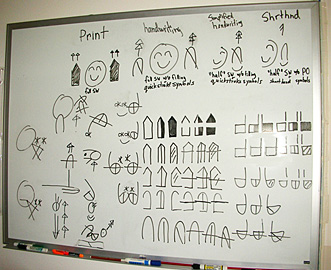 Print
handwriting
Simplified
handwriting
Shrthnd
full SW
full SW w/o filling
quickstroks symbols
"half" SW w/o filling
quickstroks symbols
"half" SW w/o PO
shorthand symbols
OK
OK OK
OK